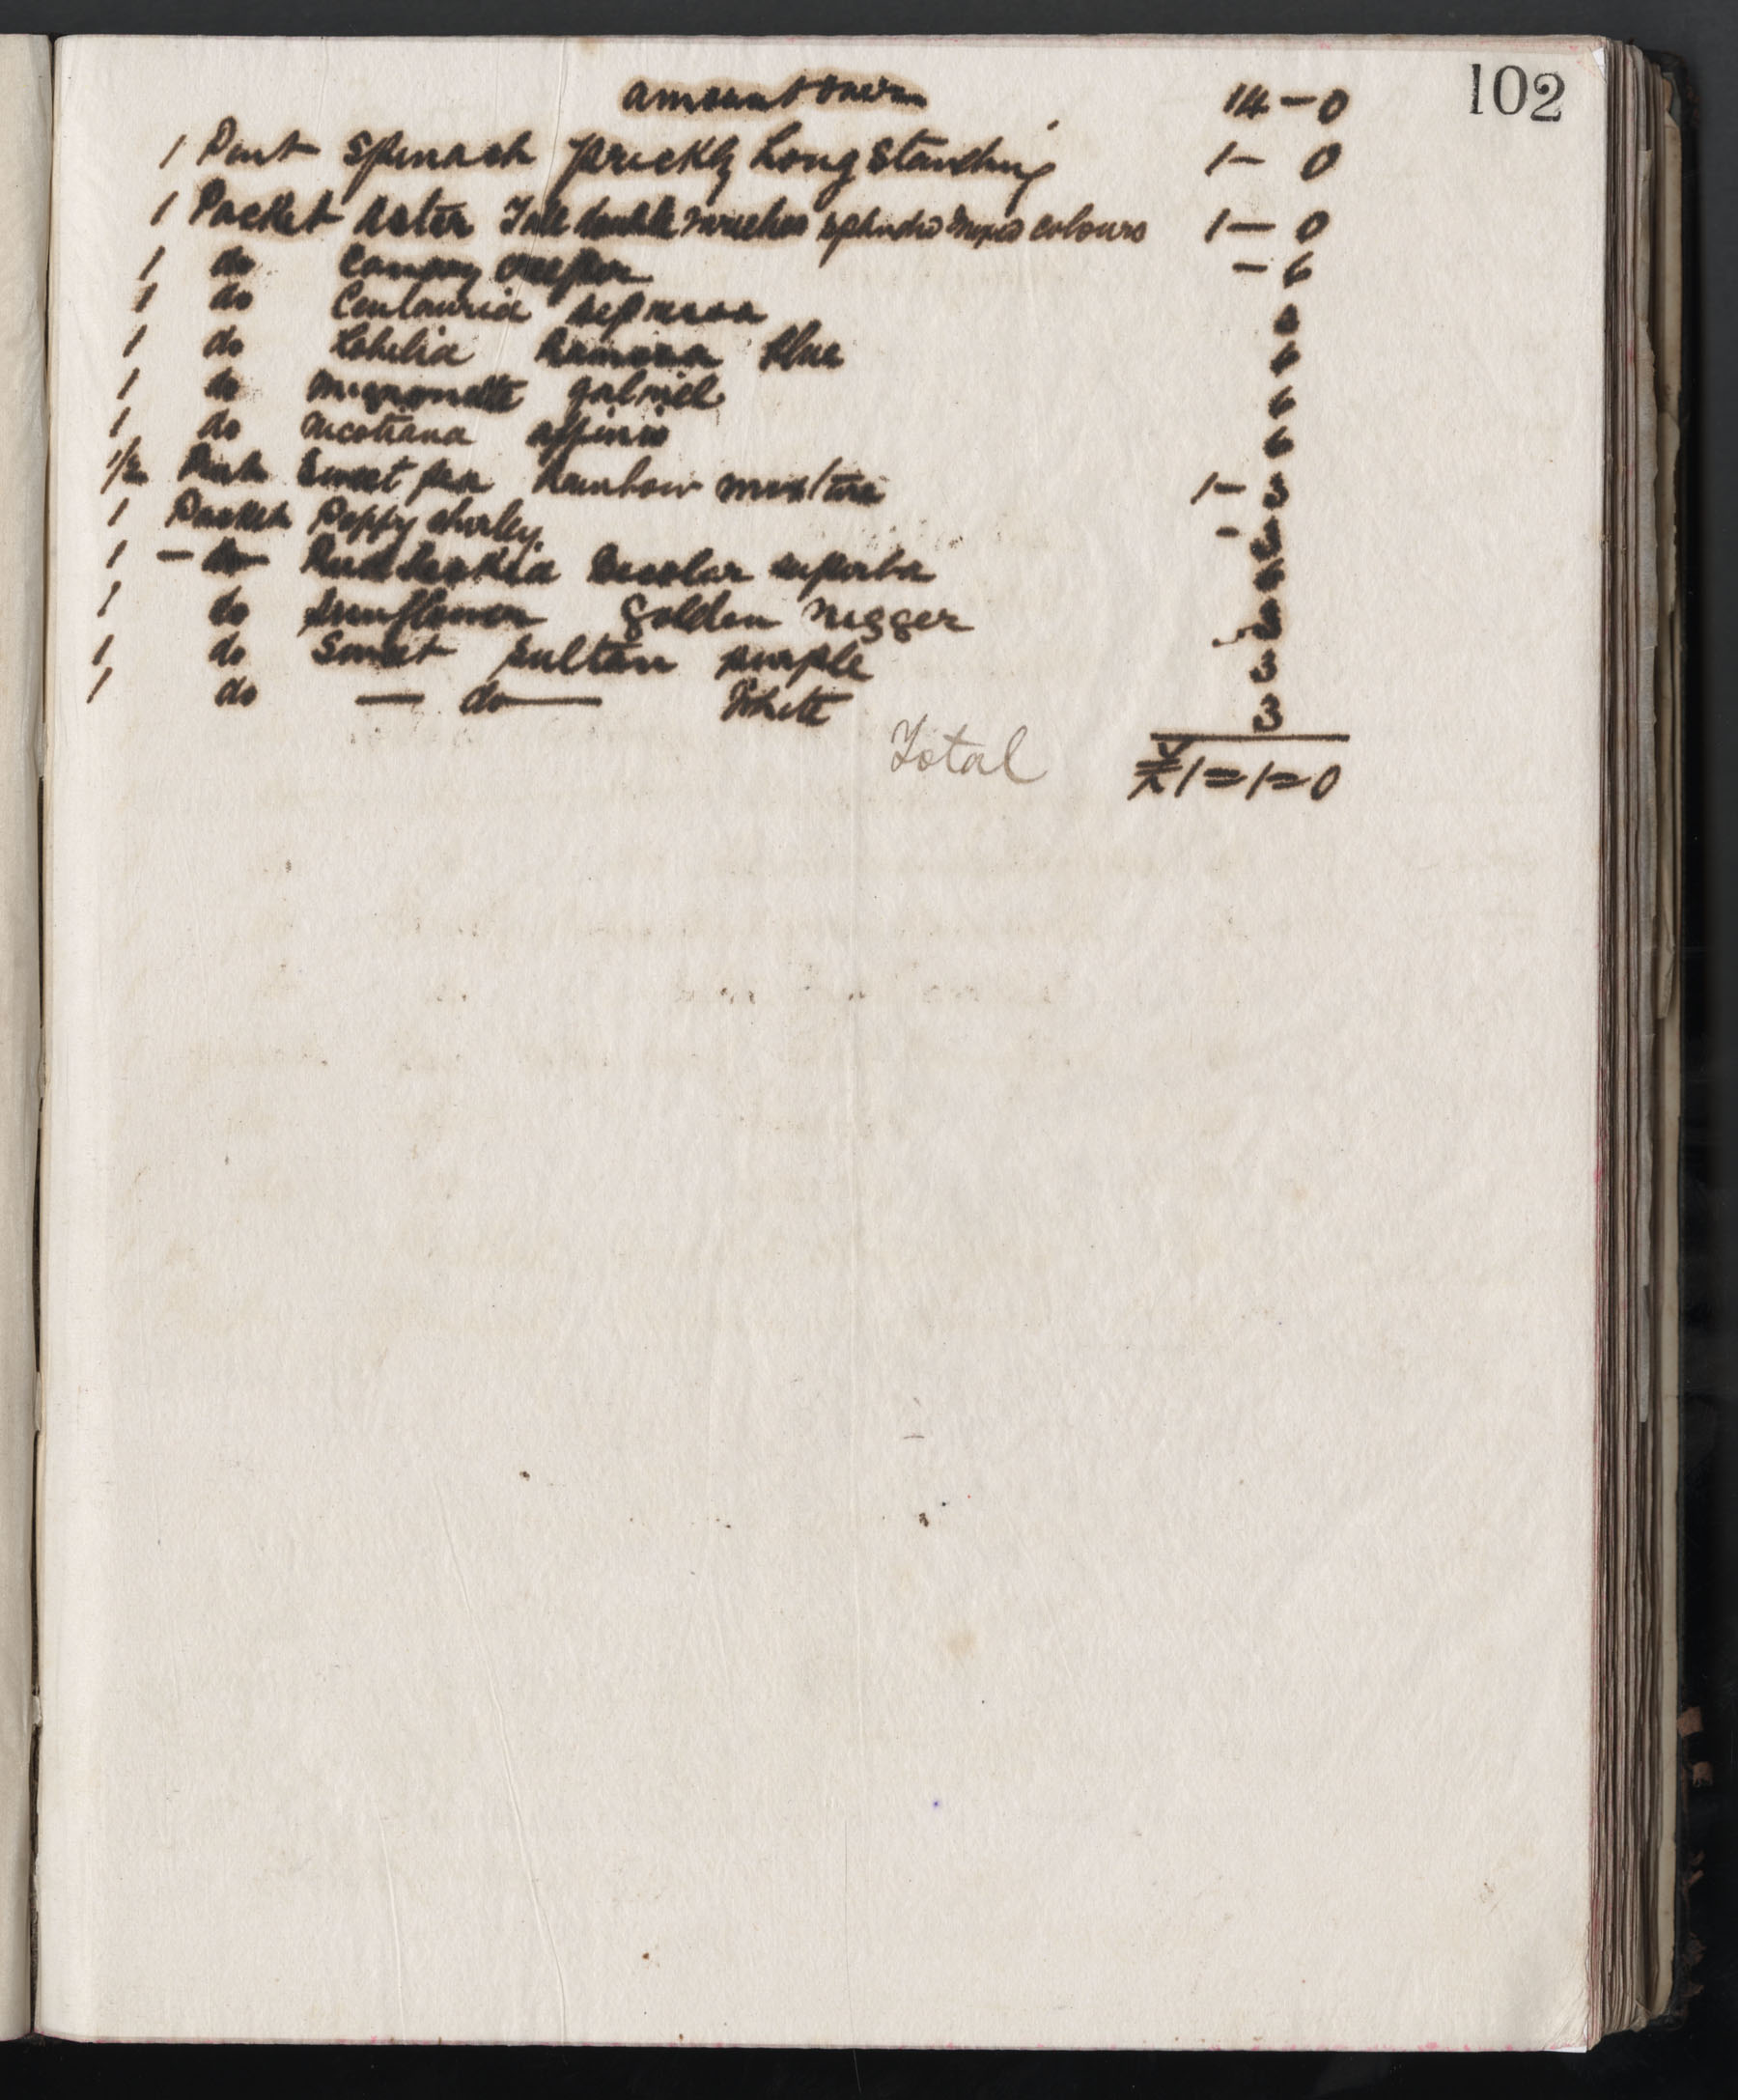 102
amount over 14 - 0
1 Pint Spinach prickly Long Standing 1 - 0
1 Packet Aster Tall double mixed colours 1 - 0
1 do Canary creeper - 6
1 do Centauria 6
1 do Lobelia Ramosa blue 6
1 do mignonette gabriel 6
1 do nicotiana affinis 6
1/2 Pint Sweet pea Rainbow mixture 1 - 3
1 Packet Poppy shirley - 3
1 - do - Rudbeckia Bicolar superba 6
1 do sunflower golden nigger 3
1 do Sweet Sultan purple 3
1 do — do — White 3
Total £1 = 1 = 0